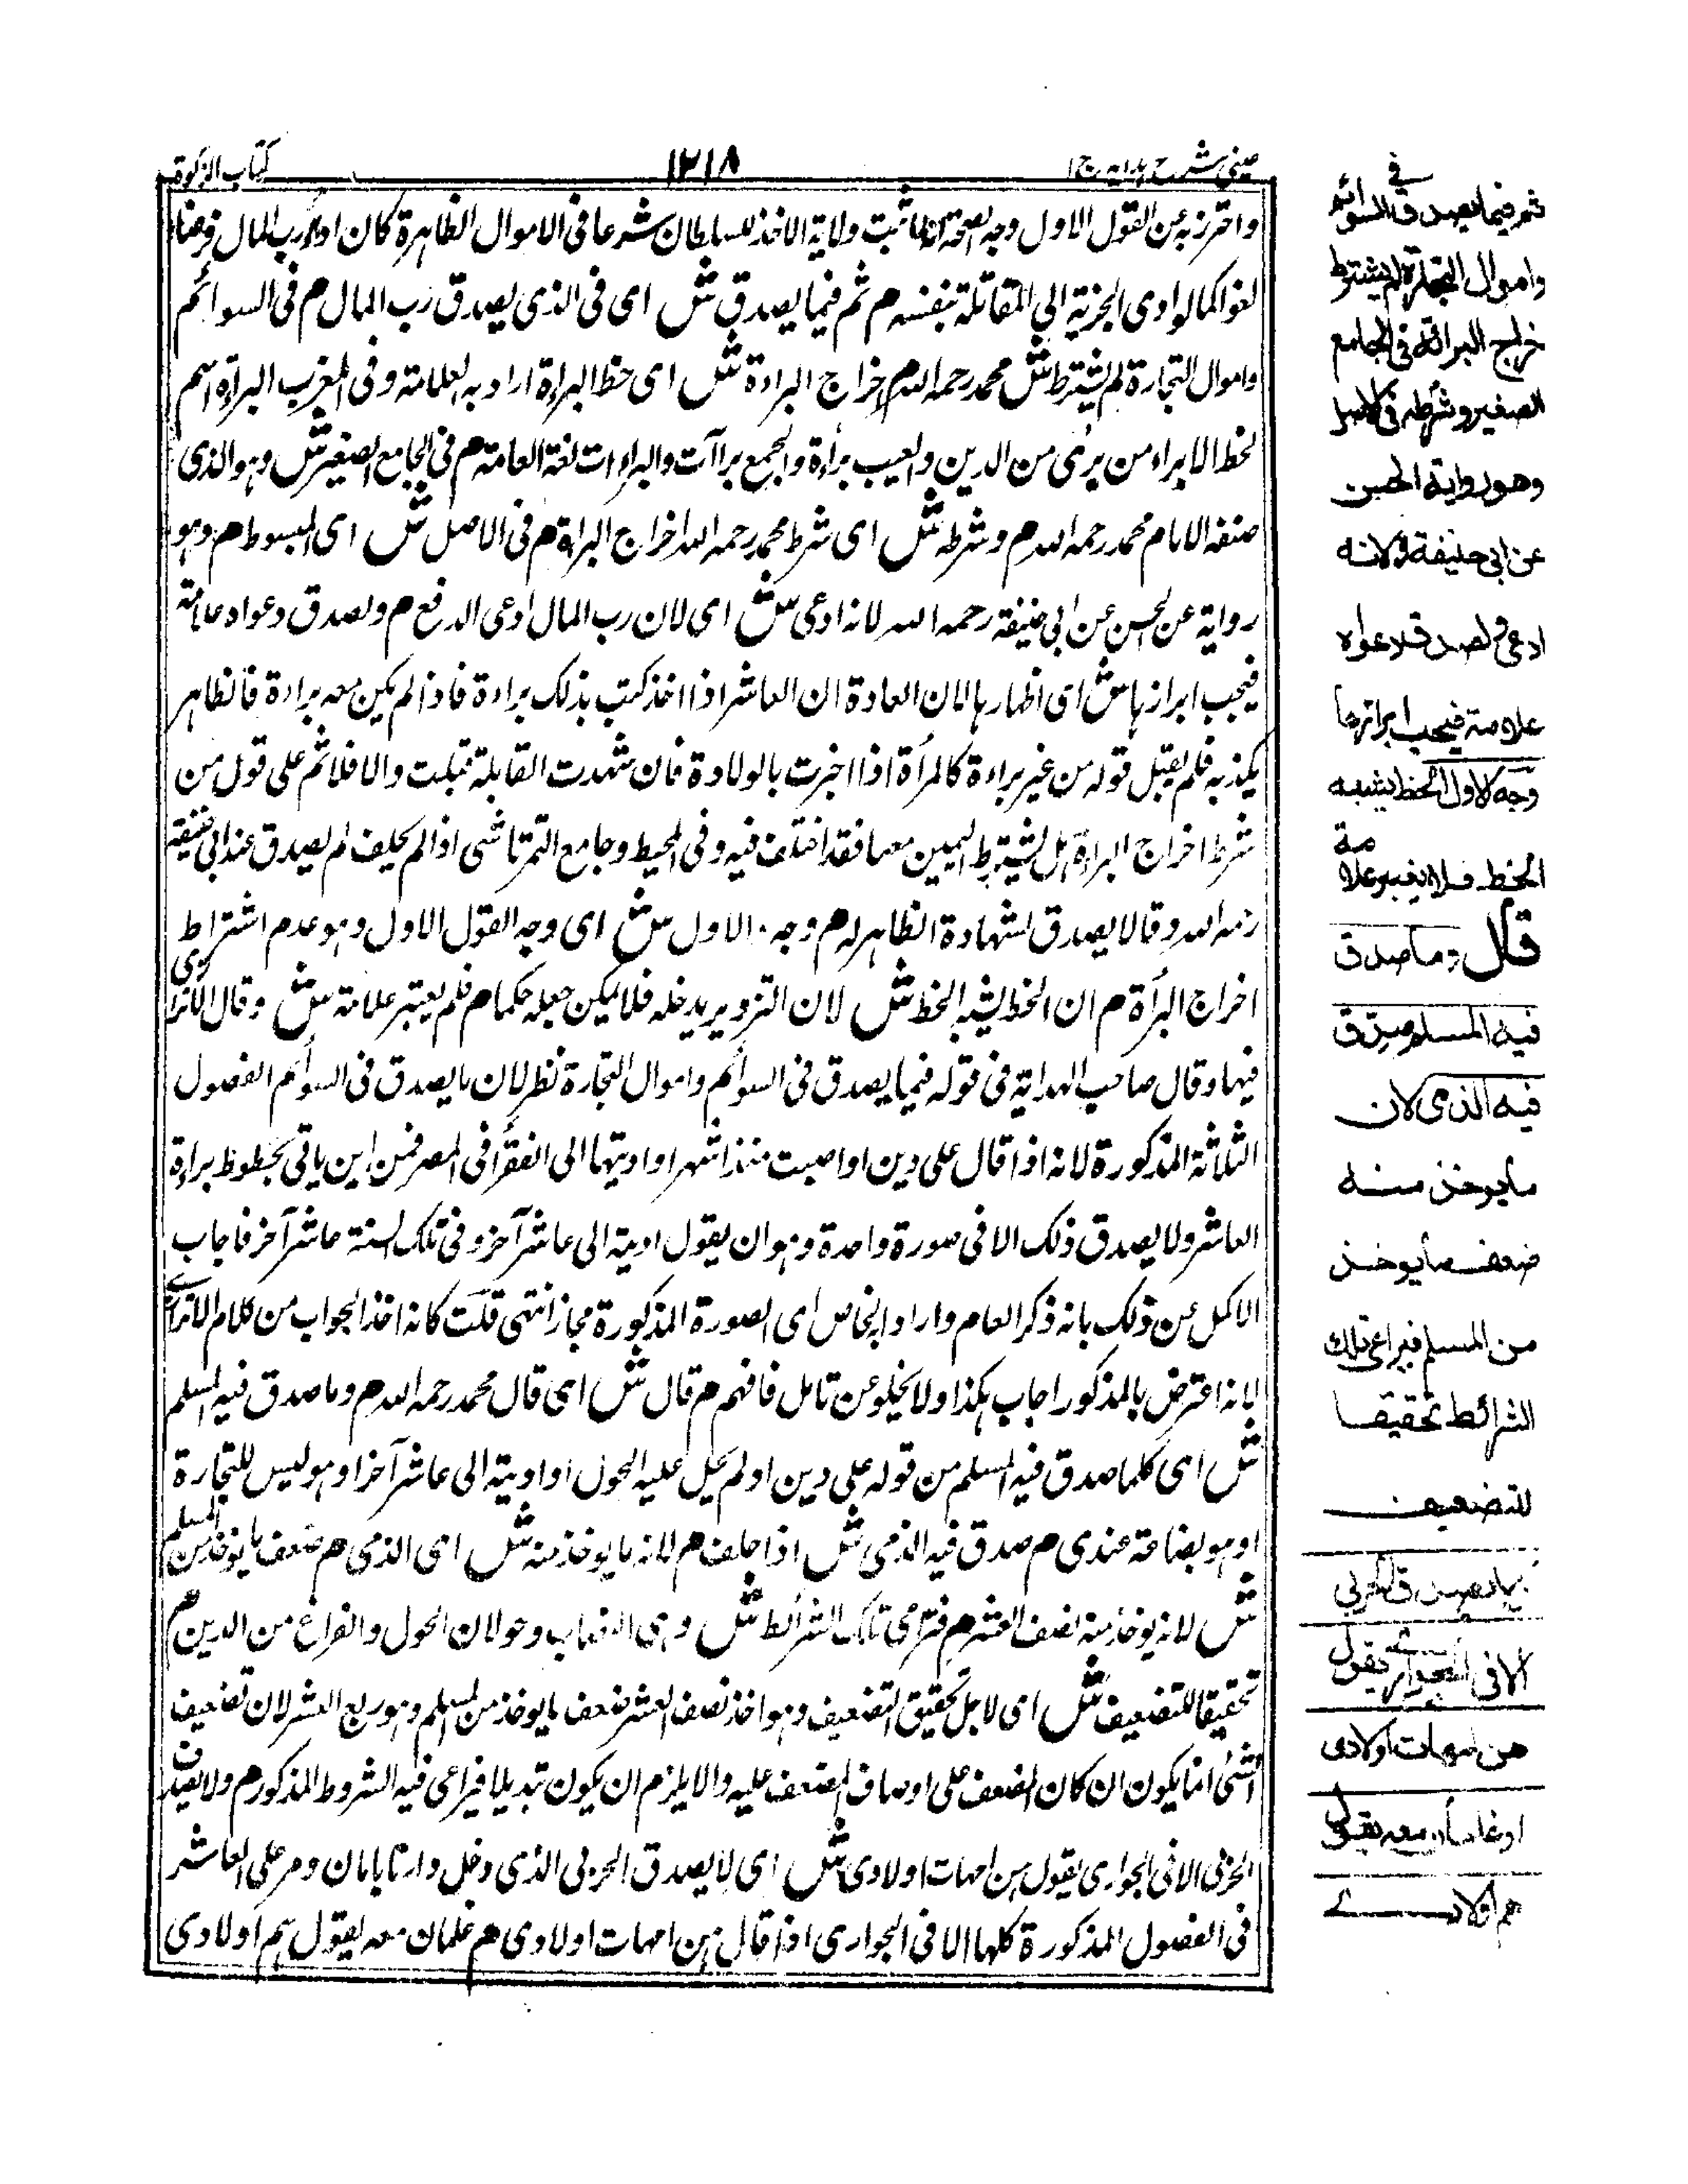 عينى شرح هدايه ج ا
١٢١٨
كتاب الزكوة
واحترز به عن القول الاول وجه الصحة انه لما ثبت ولاية الاخذ للسلطان شرعا فى الاموال الظاهرة كان اداء رب المال فرضا
لغوا كما لو ادى الجزية الى المقاتلة بنفسه م ثم فيما يصدق ش اى فى الذى يصدق رب المال م فى السوائم
واموال التجارة لم يشترط ش محمد رحمه الله م اخراج البراءة ش اى خط البراءة اراد به العلامة وفى المغرب البراءة اسم
لخط الابراء من برئ من الدين والعيب براءة والجمع براآت والبراوات لغة العامة م فى الجامع الصغير ش وهو الذى
صنفه الامام محمد رحمه الله م وشرطه ش اى شرط محمد رحمه الله اخراج البراءة م فى الاصل ش اى المبسوط م وهو
رواية عن الحسن عن ابى حنيفة رحمه الله لانه ادعى ش اى لان رب المال ادعى الدفع م ولصدق دعواه علامة
فيجب ابرازها ش اى اظهارها لان العادة ان العاشر اذا اخذ كتب بذلك براءة فاذا لم يكن معه براءة فالظاهر
يكذبه فلم يقبل قوله من غير براءة كالمرأة اذا اخبرت بالولادة فان شهدت القابلة قبلت والا فلا ثم على قول من
شرط اخراج البراءة هل يشترط اليمين معها فقد اختلف فيه وفى المحيط وجامع التمرتاشى اذا لم يحلف لم يصدق عند ابى حنيفة
رحمه الله وقالا يصدق لشهادة الظاهر له م وجه الاول ش اى وجه القول الاول وهو عدم اشتراط
اخراج البرأة م ان الخط يشبه الخط ش لان التزوير يدخله فلا يمكن جعله حكما م فلم يعتبر علامة ش وقال الاترازى
فيها وقال صاحب الهداية فى قوله فيما يصدق فى السوائم واموال التجارة نظر لان ما يصدق فى السوائم الفصول
الثلاثة المذكورة لانه اذا قال على دين او اصبت منذ اشهر او اديتها الى الفقرأ فى المصر فمن اين ياتى بخطوط براءة
العاشر ولا يصدق ذلك الا فى صورة واحدة وهو ان يقول اديته الى عاشر آخر وفى تلك السنة عاشر آخر فاجاب
الاكمل عن ذلك بانه ذكر العام واراد به الخاص اى الصورة المذكورة مجازا انتهى قلت كانه اخذ الجواب من كلام الاترازى
لانه اعترض بالمذكور اجاب هكذا ولا يخلو عن تامل فافهم م قال ش اى قال محمد رحمه الله م وما صدق فيه المسلم
ش اى كلما صدق فيه المسلم من قوله على دين او لم يحل عليه الحول او اديته الى عاشر آخر او هو ليس للتجارة
او هو بضاعة عندى م صدق فيه الذمى ش اذا حلف م لانه ما يوخذ منه ش اى الذمى م ضعف ما يوخذ من المسلم
ش لانه يوخذ منه نصف العشر م فتراعى تلك الشرائط ش وهى النصاب وحولان الحول والفراغ من الدين م
تحقيقا للتضعيف ش اى لاجل تحقيق التضعيف وهو اخذ نصف العشر ضعف ما يوخذ من المسلم وهو ربع العشر لان تضعيف
الشئ انما يكون ان كان المضعف على اوصاف المضعف عليه والا يلزم ان يكون تبديلا فيراعى فيه الشروط المذكورة م ولا يصدق
الحربى الا فى الجوارى يقول هن امهات اولادى ش اى لا يصدق الحربى الذى دخل دارنا بامان ومر على العاشر
فى الفصول المذكورة كلها الا فى الجوارى اذا قال هن امهات اولادى م او غلمان معه يقول هم اولادى
ثم فيما يصدق فى السوائم
واموال التجارة لم يشترط
اخراج البراءة فى الجامع
الصغير وشرطه فى الاصل
وهو رواية الحسن
عن ابى حنيفة رح لانه
ادعى ولصدق دعواه
علامة فيجب ابرازها
وجه الاول ان الخط يشبه
الخط فلا يعتبر علامة
قال وما صدق
فيه المسلم صدق
فيه الذمى لان
ما يوخذ منه
ضعف ما يوخذ
من المسلم فيراعى تلك
الشرائط تحقيقا
للتضعيف
ولا يصدق الحربى
الا فى الجوارى يقول
هن امهات اولادى
او غلمان معه يقول
هم اولادى